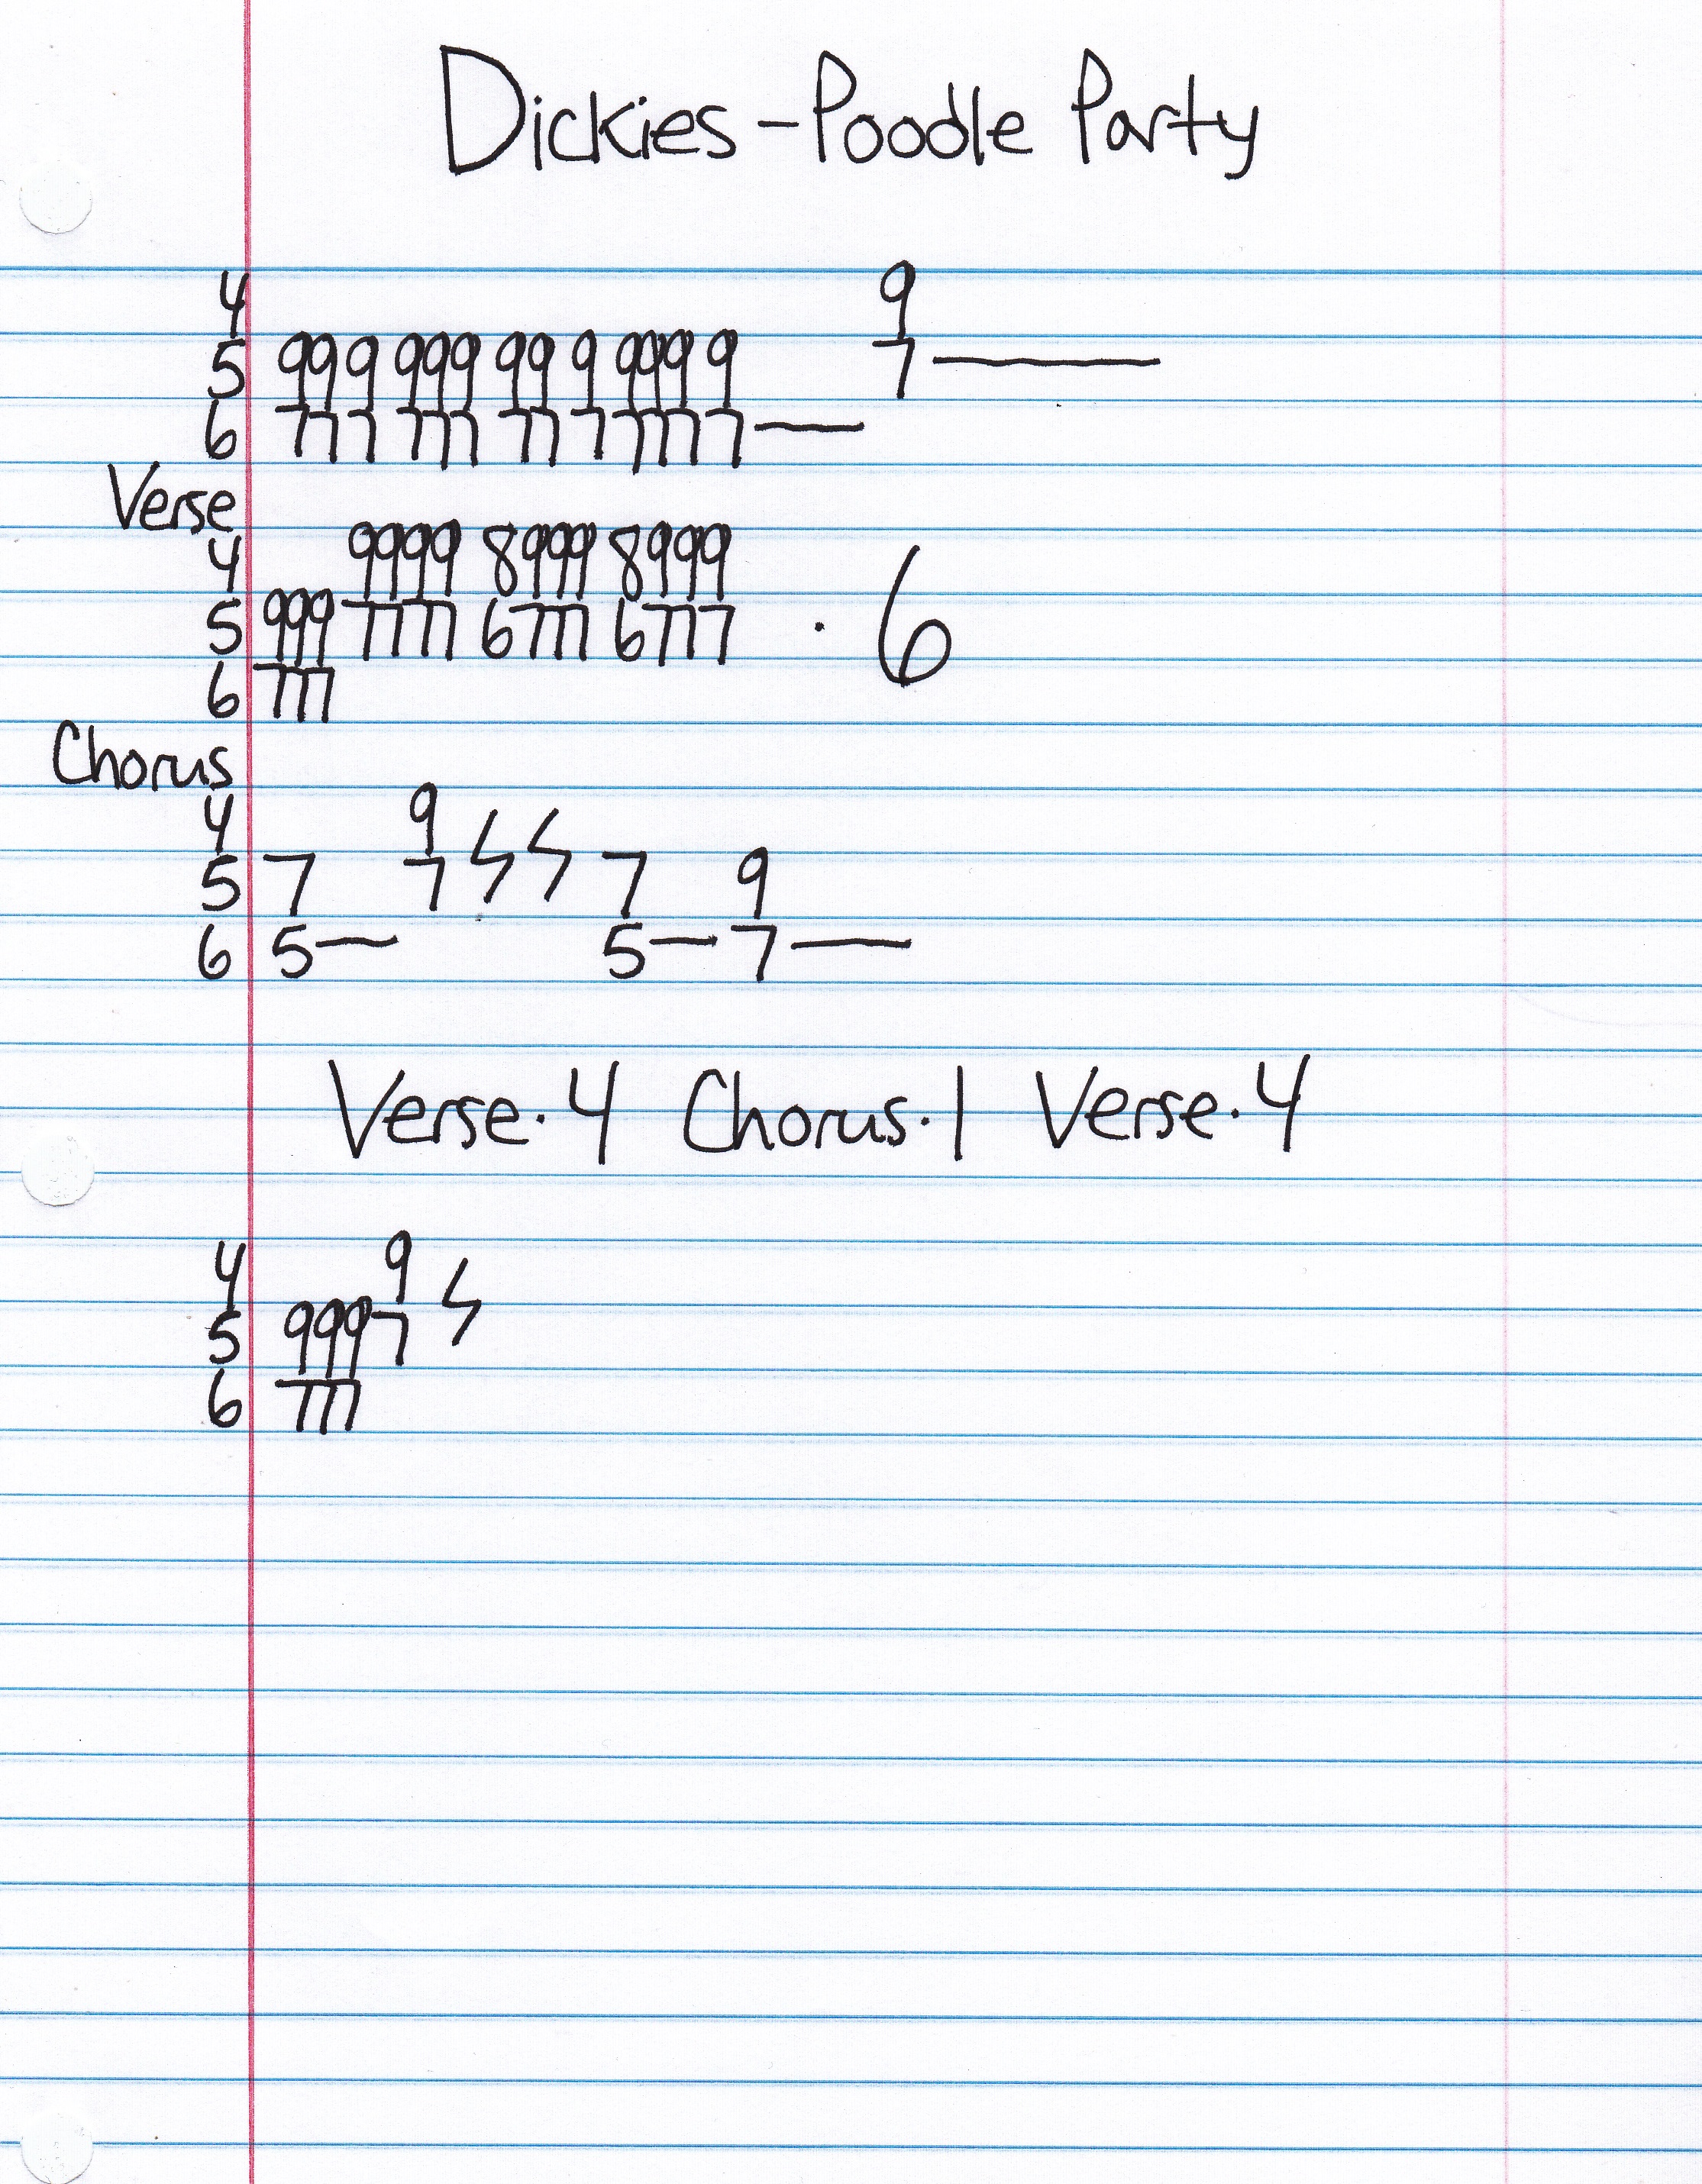 Dickies - Poodle Party
4 9
5 99 9 999 99 9 999 9 7 ———
6 77 7 777 77 7 777 7 —
Verse
4 9999 8999 8999
5 999 7777 6777 6777 · 6
6 777
Chorus
4 9
5 7 7 7 9
6 5 — 5 — 7 —
Verse · 4 Chorus · 1 Verse · 4
4 9
5 999 7
6 777